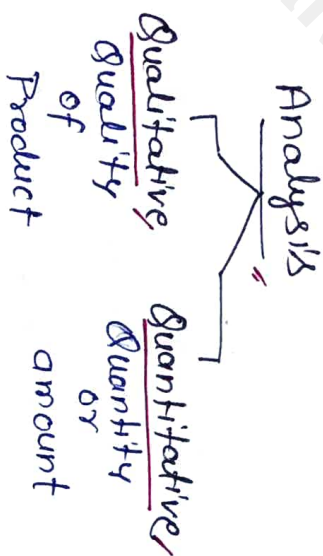 Analysis
Qualitative
Quality
of
Product
Quantitative
Quantity
or
amount